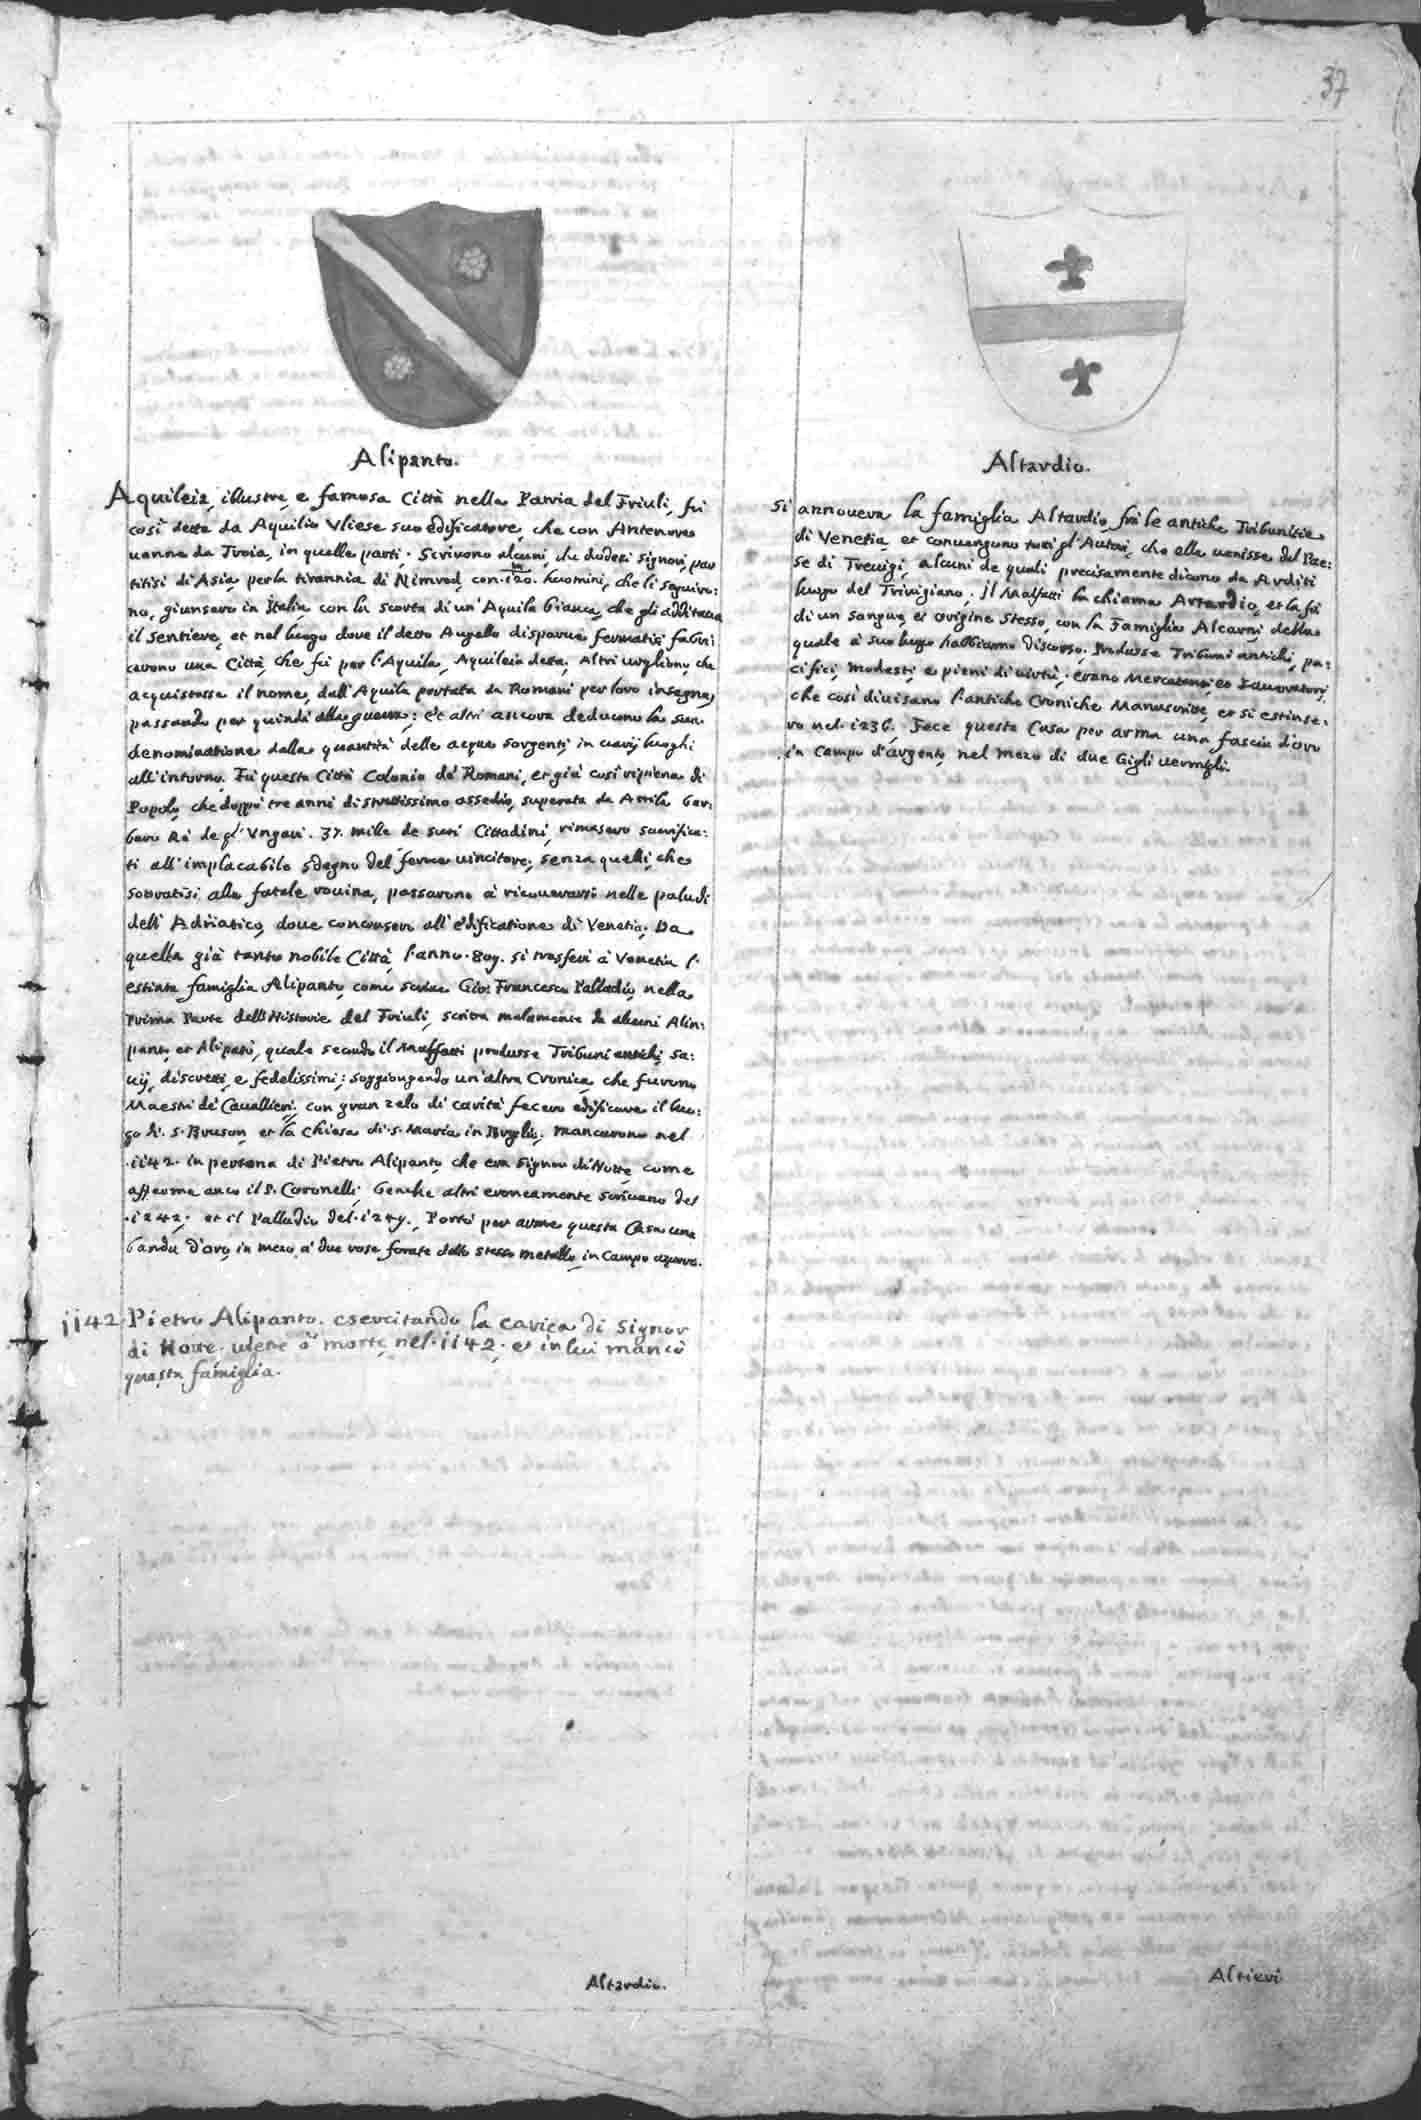 37
Alipanto.
Aquileia, illustre, e famosa Città nella Patria del Friuli, fù
così detta da Aquilio Vliese suo edificatore, che con Antenore
uenne da Troia, in quelle parti. Scrivono alcuni, che dodeci Signori, par
titisi di Asia, per la tirannia di Nimrod, con .120. huomini, che li seguiro:
no, giunsero in Italia, con la scorta di un' Aquila bianca, che gli additaua
il sentiere, et nel luogo doue il detto Augello disparue, fermatisi fabri
carono una Città, che fù per l'Aquila, Aquileia detta; Altri uogliono, che
acquistasse il nome, dall'Aquila portata da Romani per loro insegna,
passando per quindi alla guerra; et altri ancora deducono la sua
denominatione dalla quantità delle acque sorgenti in uarij luoghi
all'intorno. Fù questa Città Colonia de Romani, et già così ripiena di
Popolo, che doppò tre anni di strettissimo assedio, superata da Attila bar:
baro Rè de gl'Vngari. 37. mille de suoi Cittadini, rimasero sacrifica:
ti all'implacabile sdegno del feroce uincitore, senza quelli, che
sottratisi alla fatale rouina, passarono à ricouerarsi nelle paludi
dell'Adriatico, doue concorsero all'edificatione di Venetia. Da
quella già tanto nobile Città l'anno .809. si trasferì à Venetia l'
estinta famiglia Alipanto, come scriue Gio: Francesco Palladio, nella
Prima Parte dell'Historie del Friuli, scritta malamente da alcuni Alin:
panto, et Alipato, quale secondo il Malfatti produsse Tribuni antichi, sa:
uij, discretti, e fedelissimi; soggiongendo un'altra Cronica, che furono
Maestri de Cauallieri, con gran zelo di carità fecero edificare il luo:
go di .S. Bruson, et la Chiesa di .S. Maria in Broglio. Mancarono nel
.1142. in persona di Pietro Alipanto, che era Signor di Notte, come
afferma anco il P. Coronelli; benche altri eroneamente scriuano del
.1242; et il Palladio del .1249. Portò per arme questa Casa una
banda d'oro, in mezo à due rose forate dello stesso metallo, in Campo azurro.
1142. Pietro Alipanto. esercitando la carica di Signor
di Notte. uiene à morte, nel .1142. et in lui mancò
questa famiglia.
Altardio.
Altardio.
Si annouera la famiglia Altardio frà le antiche Tribunitie
di Venetia, et conuengono tutti gl'Autori, che ella uenisse dal Pae:
se di Treuigi, alcuni de quali precisamente dicono da Arditi
luogo del Triuigiano. Il Malfatti la chiama Artardio, et la fà
di un sangue, et origine stessa, con la Famiglia Alcarni della
quale à suo luogo habbiamo discorso. Produsse Tribuni antichi, pa:
cifici, modesti, e pieni di uirtù; erano Mercatanti, et Lauoratori,
che così diuisano l'antiche Croniche Manuscritte, et si estinse:
ro nel .1236. Fece questa Casa per arma una fascia d'oro
in Campo d'argento, nel mezo di due Gigli uermigli.
Altieri